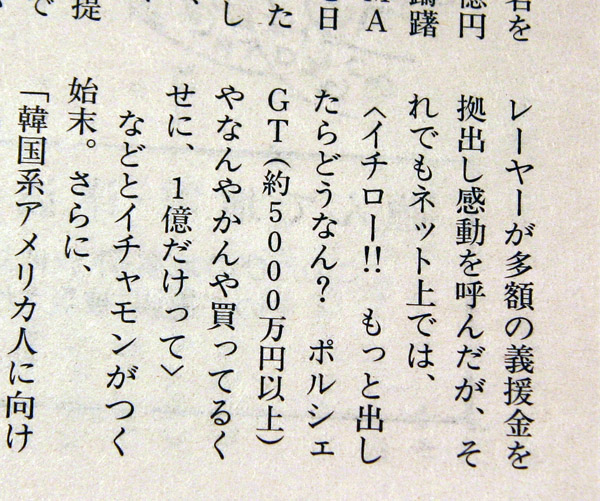 名を
億円
躊躇
MA
日
た
し
提
で
レーヤーが多額の義援金を
拠出し感動を呼んだが、そ
れでもネット上では、
〈イチロー!! もっと出し
たらどうなん? ポルシェ
GT（約5000万円以上）
やなんやかんや買ってるく
せに、1億だけって〉
などとイチャモンがつく
始末。さらに、
「韓国系アメリカ人に向け